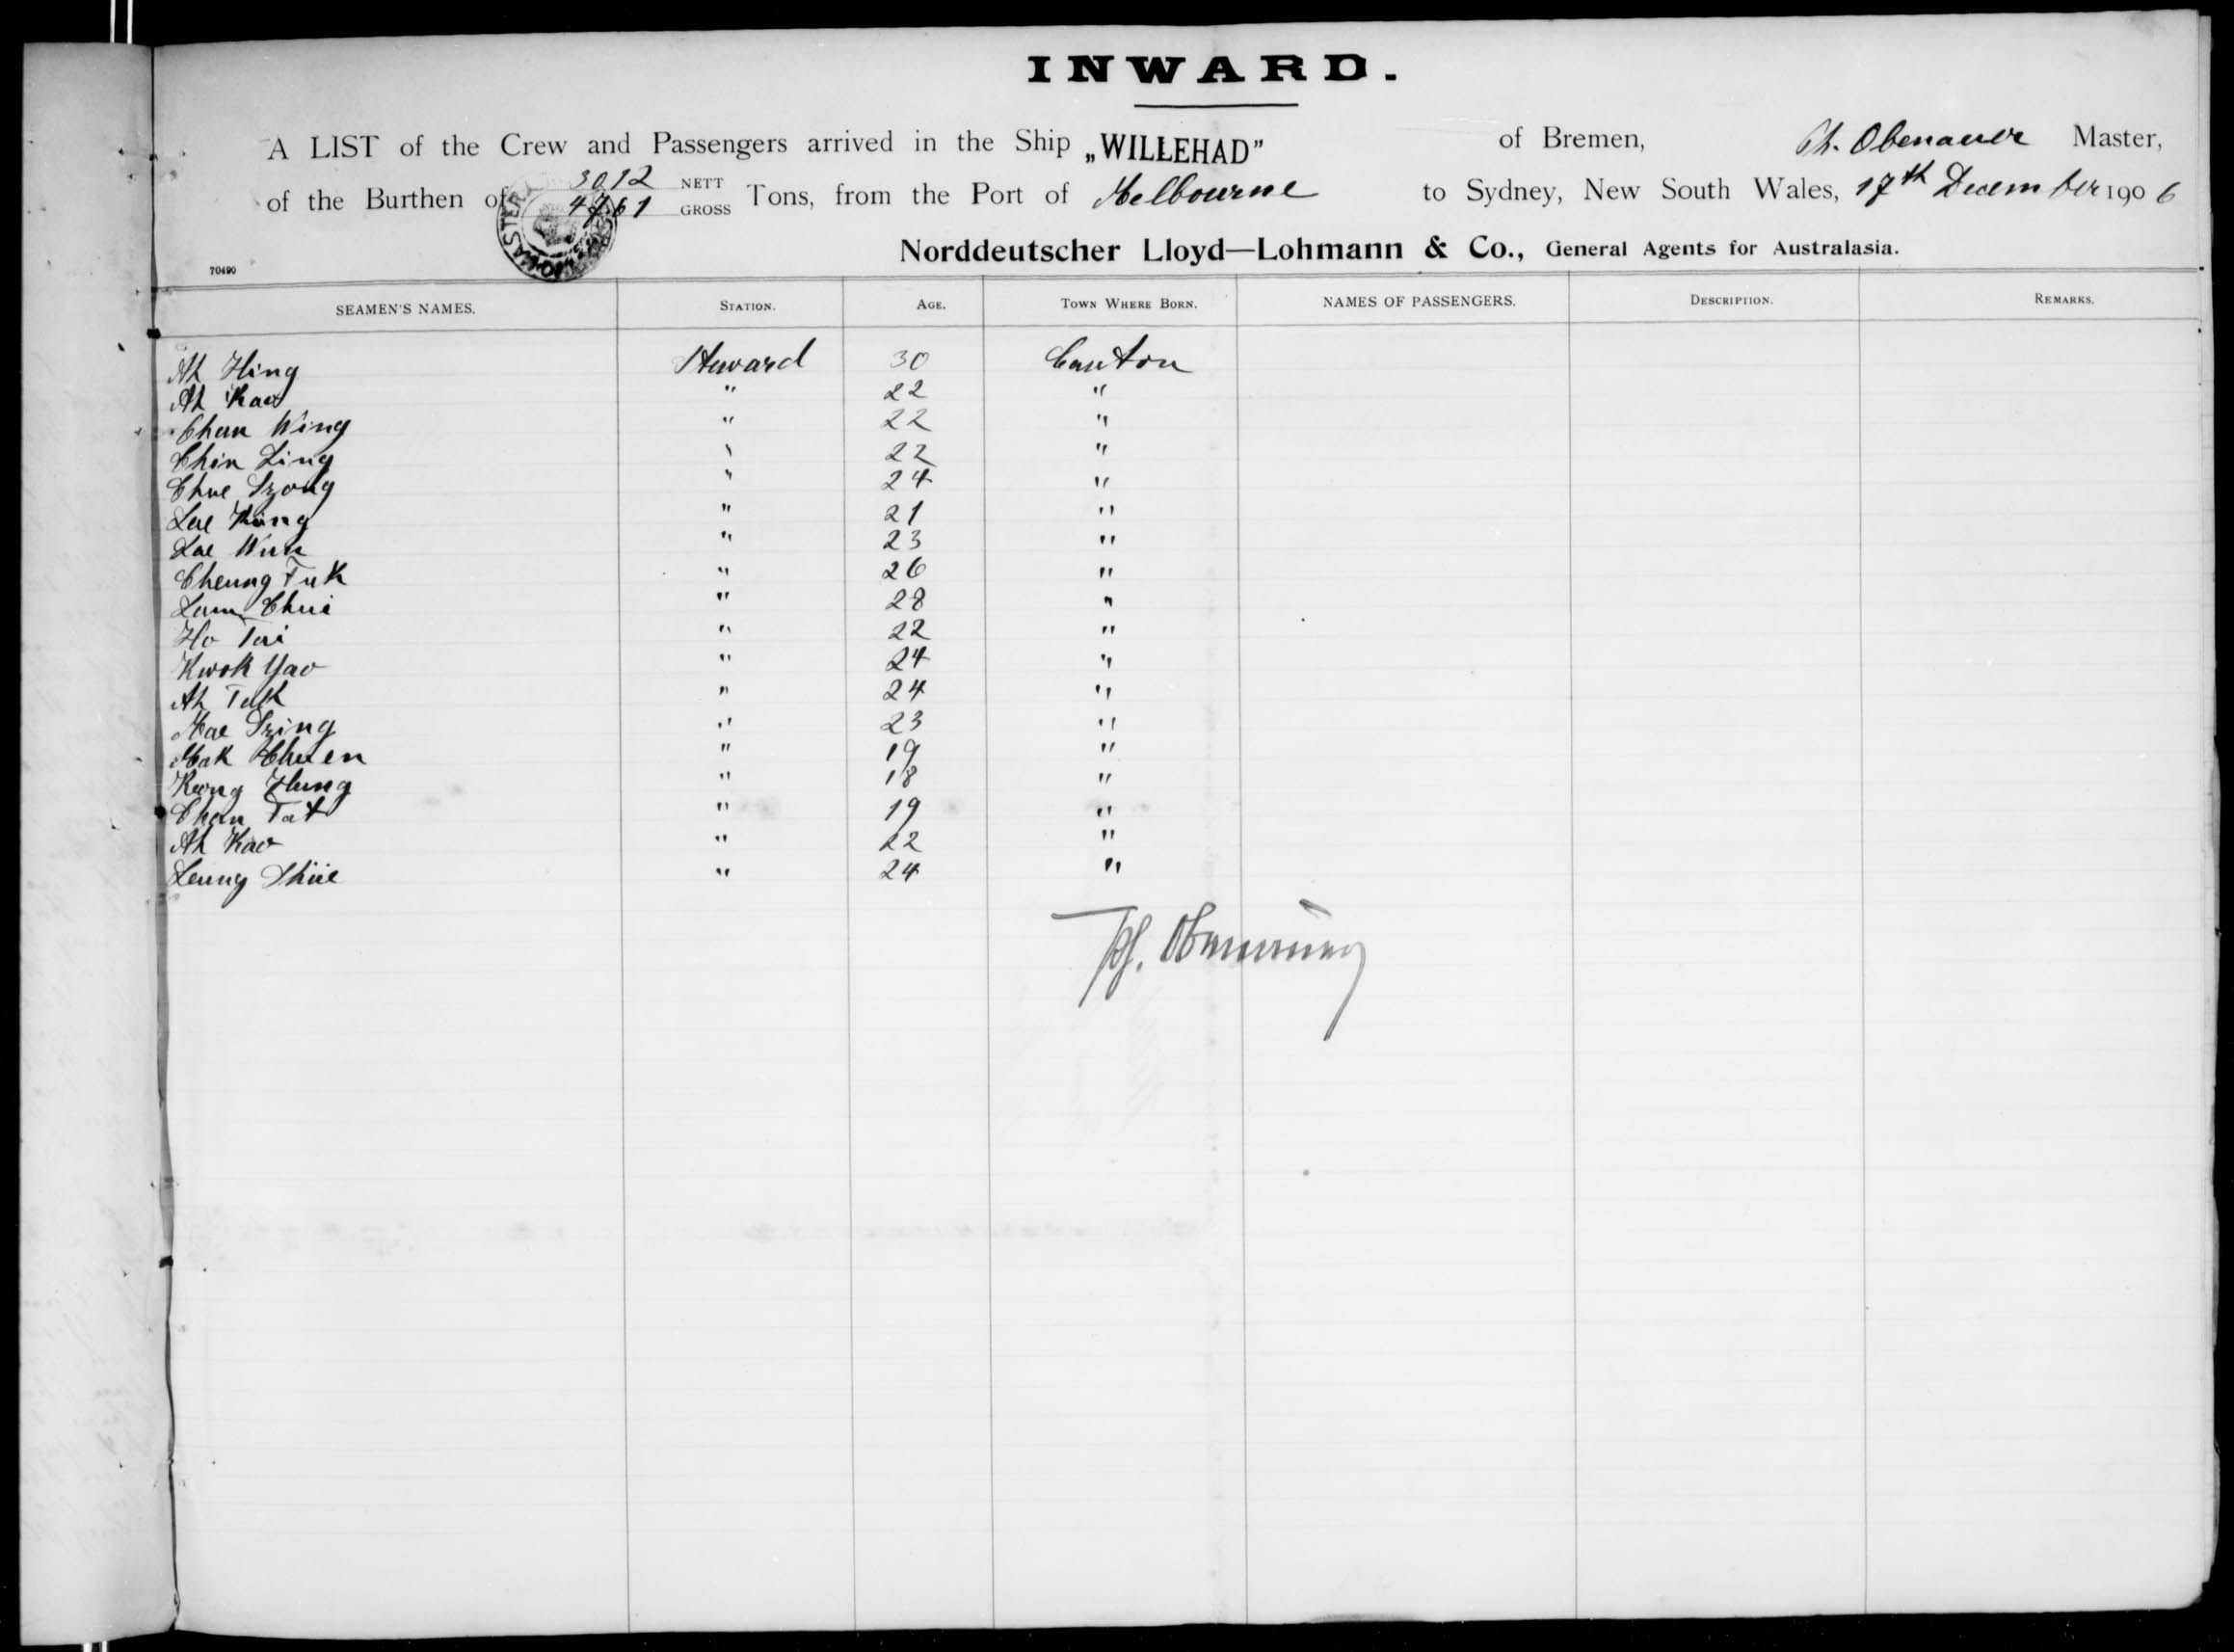 INWARD.
A LIST of the Crew and Passengers arrived in the Ship „WILLEHAD” of Bremen, Ph. Obenauer Master,
of the Burthen of 3012 NETT 4761 GROSS Tons, from the Port of Melbourne to Sydney, New South Wales, 17th December 1906
Norddeutscher Lloyd—Lohmann & Co., General Agents for Australasia.
70490
SEAMEN'S NAMES. STATION. AGE. TOWN WHERE BORN. NAMES OF PASSENGERS. DESCRIPTION. REMARKS.
Ah Hing Steward 30 Canton
Ah Kao " 22 "
Chan Wing " 22 "
Chin Ling " 22 "
Chue Szong " 24 "
Lae Kung " 21 "
Lae Wun " 23 "
Cheung Tuk " 26 "
Lam Chui " 28 "
Ho Tai " 22 "
Kwok Yao " 24 "
Ah Tuk " 24 "
Mae Szing " 23 "
Mak Chuen " 19 "
Kong Hung " 18 "
Chan Tat " 19 "
Ah Kao " 22 "
Leung Shue " 24 "
Ph. Obenauer